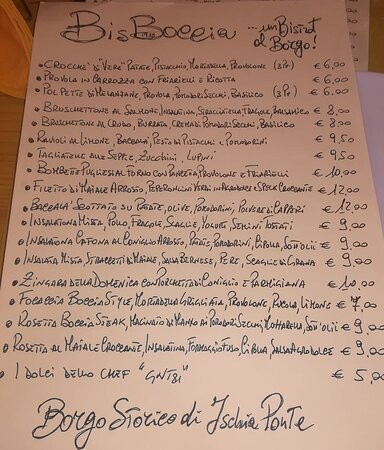 BisBoccia ...un Bistrot al Borgo!
• CROCCHE' DI "VERE" PATATE, PISTACCHIO, MORTADELLA, PROVOLONE (3 Pz) € 6,00
• PROVOLA IN CARROZZA CON FRIARIELLI E RICOTTA € 6,00
• POLPETTE DI MELANZANE, PROVOLA, POMODORI SECCHI, BASILICO (3 Pz) € 6,00
• BRUSCHETTONE AL SALMONE, INSALATINA, STRACCIATELLA, FRAGOLE, BALSAMICO € 8,00
• BRUSCHETTONE AL CRUDO, BURRATA, CREMA DI POMODORI SECCHI, BASILICO € 8,00
• RAVIOLI AL LIMONE, BACCALÀ, PESTO DI PISTACCHI E POMODORINI € 9,50
• TAGLIATELLE ALLE SEPPIE, ZUCCHINI, LUPINI € 9,50
• BOMBETTE PUGLIESI AL FORNO CON PANCETTA, PROVOLONE E FRIARIELLI € 10,00
• FILETTO DI MAIALE ARROSTO, PEPERONCINI VERDI IN POMODORO E SPECK CROCCANTE € 12,00
• BACCALÀ SCOTTATO SU PATATE, OLIVE, POMODORINI, POLVERE DI CAPPERI € 12,00
• INSALATONA MISTA, POLLO, FRAGOLE, SCAGLIE, YOGURT, SEMINI TOSTATI € 9,00
• INSALATONA CAFONA AL CONIGLIO ARROSTO, PATATE, POMODORINI, CIPOLLA, SOTT'OLII € 9,00
• INSALATA MISTA STRACCETTI DI MAIALE, SALSA BERNESE, PERE, SCAGLIE DI GRANA € 9,00
• ZINGARA DELLA DOMENICA CON PORCHETTA DI CONIGLIO E PARMIGIANA € 10,00
• FOCACCIA BOCCIA STYLE, MORTADELLA GRIGLIATA, PROVOLONE, RUCOLA, LIMONE € 7,00
• ROSETTA BOCCIA STEAK, MACINATO DI MANZO AI POMODORI SECCHI, MOZZARELLA, SOTT'OLII € 9,00
• ROSETTA AL MAIALE CROCCANTE, INSALATINA, FORMAGGIO FUSO, CIPOLLA, SALSA AGRODOLCE € 9,00
• I DOLCI DELLO CHEF € 5,00
Borgo Storico di Ischia Ponte